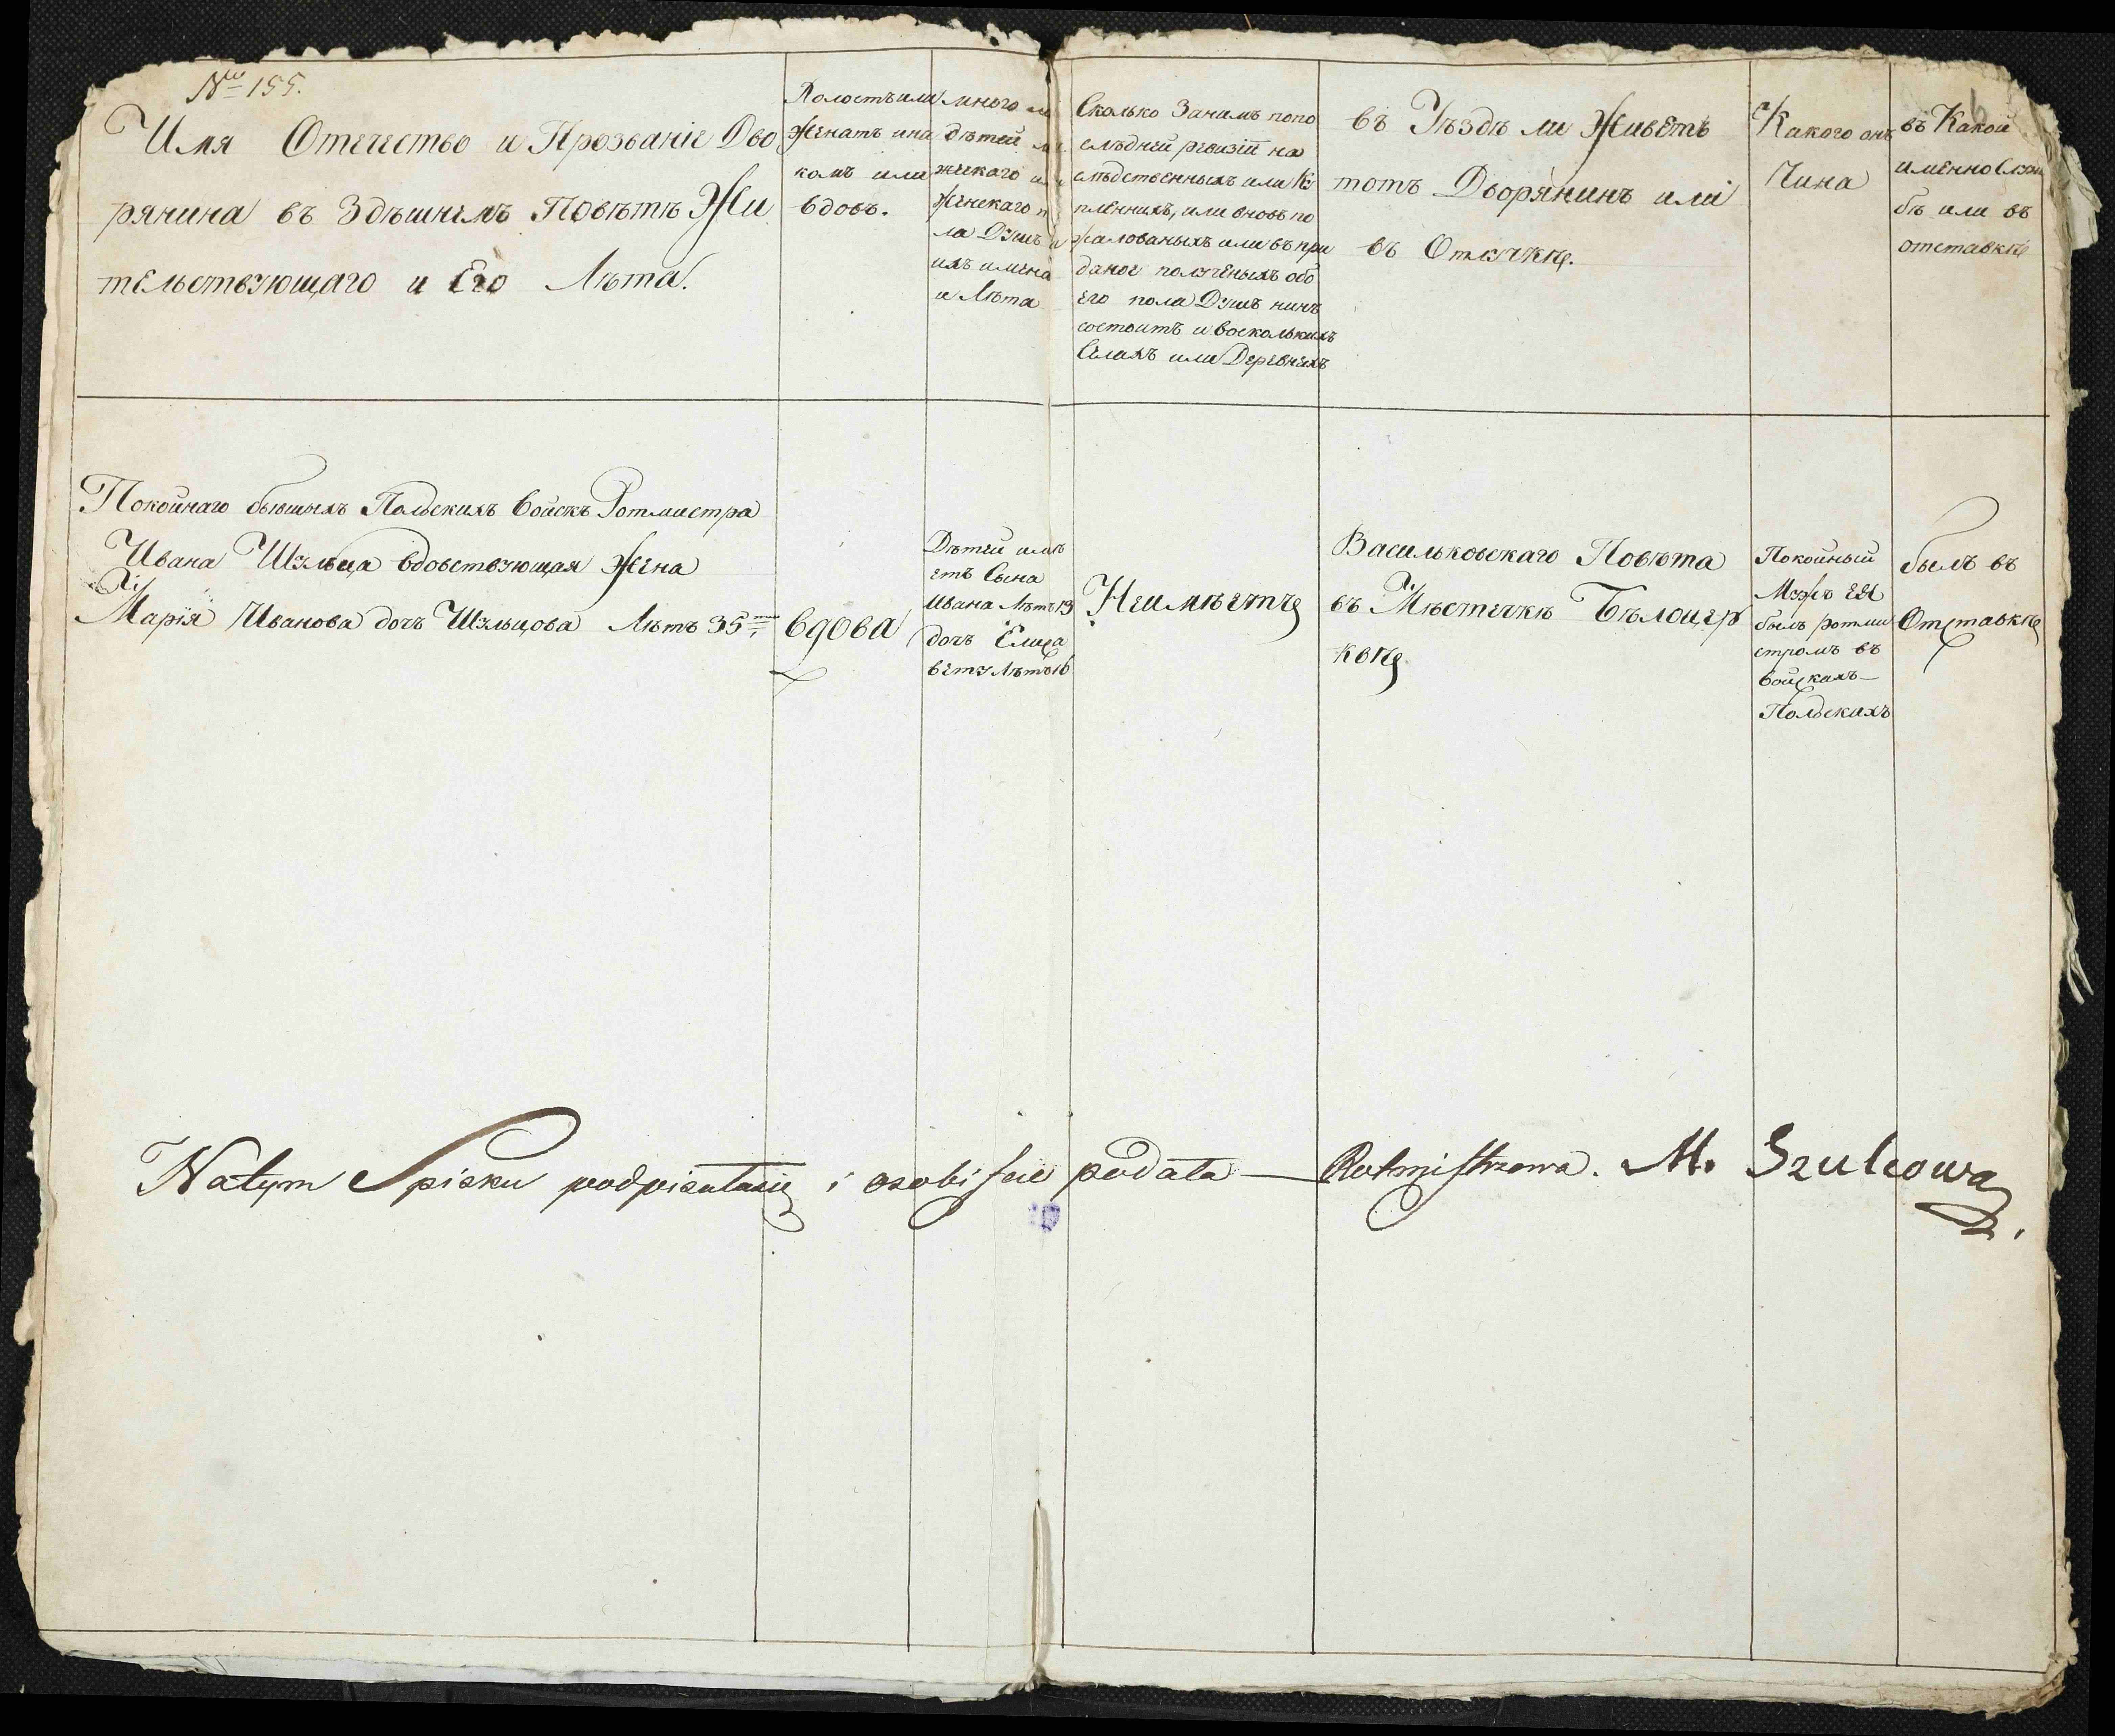 № 155.
Имя Отечество и Прозваніе Дво
рянина въ Здѣшнемъ Повѣтѣ Жи
тельствующаго и Его Лѣта.
Холостъ или
Женатъ и на
комъ или
вдовъ.
много ли
дѣтей
жескаго или
Женскаго п
ла Душъ и
ихъ имена
и Лѣта
Сколько Занимъ попо
слѣдней ревизіи на
слѣдственныхъ или К
пленныхъ, или вновь по
жалованыхъ или въ при
даное полученыхъ обо
его пола Душъ нинѣ
состоитъ и восколькихъ
Селахъ или Деревняхъ
въ Уѣздѣ ли Живетъ
тотъ Дворянинъ или
въ Отлучкѣ.
Какого онъ
Чина
въ Какой
именно Служ
бѣ или въ
отставкѣ
Покойнаго бывшихъ Польскихъ Войскъ Ротмистра
Ивана Шульца вдовствующая Жена
Марія Иванова дочь Шульцова Лѣтъ 35
вдова
Дѣтей имѣ
етъ Сына
Ивана Лѣтъ 19
дочь Елиза
вету Лѣтъ 16
Неимѣетъ
Васильковскаго Повѣта
въ Мѣстечкѣ Бѣлоцер
квѣ
Покойный
Мужъ Ея
былъ ротми
стромъ въ
войскахъ
Польскихъ
былъ въ
Отставкѣ
Natym Spisku podpisałasię i osobiscie podała — Rotmistrzowa. M. Szulcowa